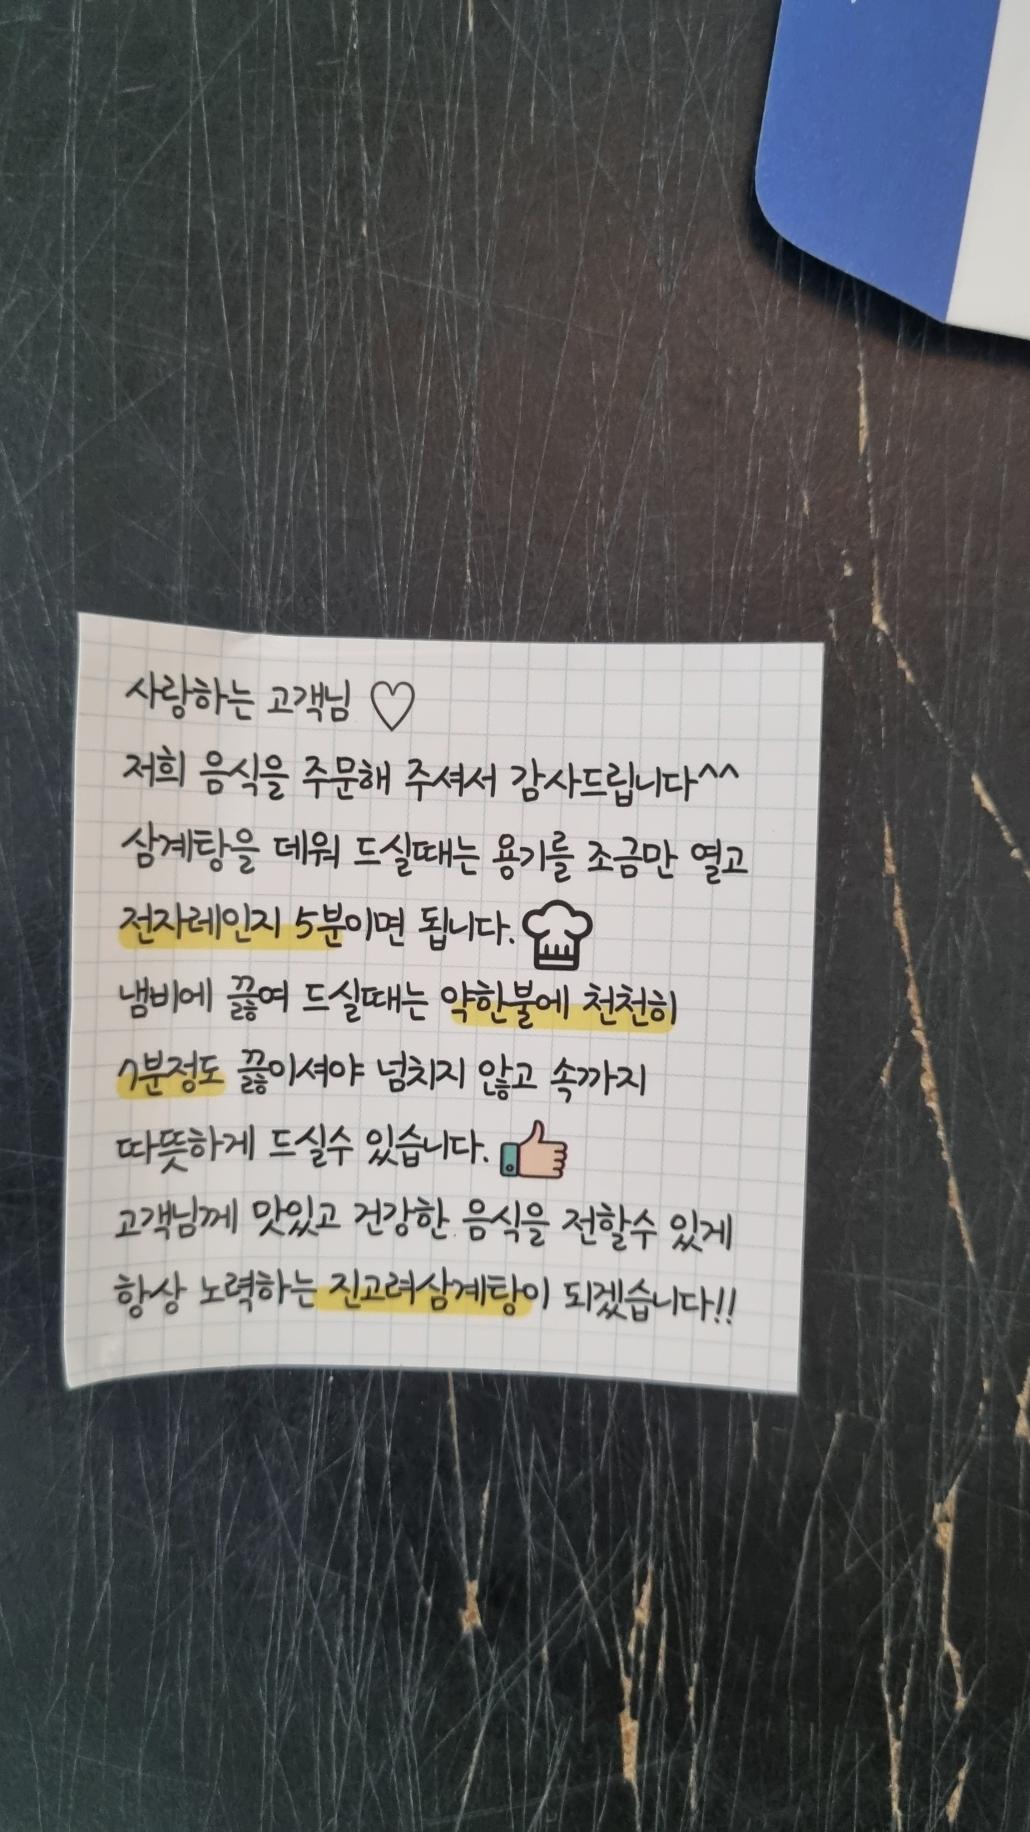 사랑하는 고객님 ♡
저희 음식을 주문해 주셔서 감사드립니다^^
삼계탕을 데워 드실때는 용기를 조금만 열고
전자레인지 5분이면 됩니다.
냄비에 끓여 드실때는 약한불에 천천히
7분정도 끓이셔야 넘치지 않고 속까지
따뜻하게 드실수 있습니다.
고객님께 맛있고 건강한 음식을 전할수 있게
항상 노력하는 진고려삼계탕이 되겠습니다!!